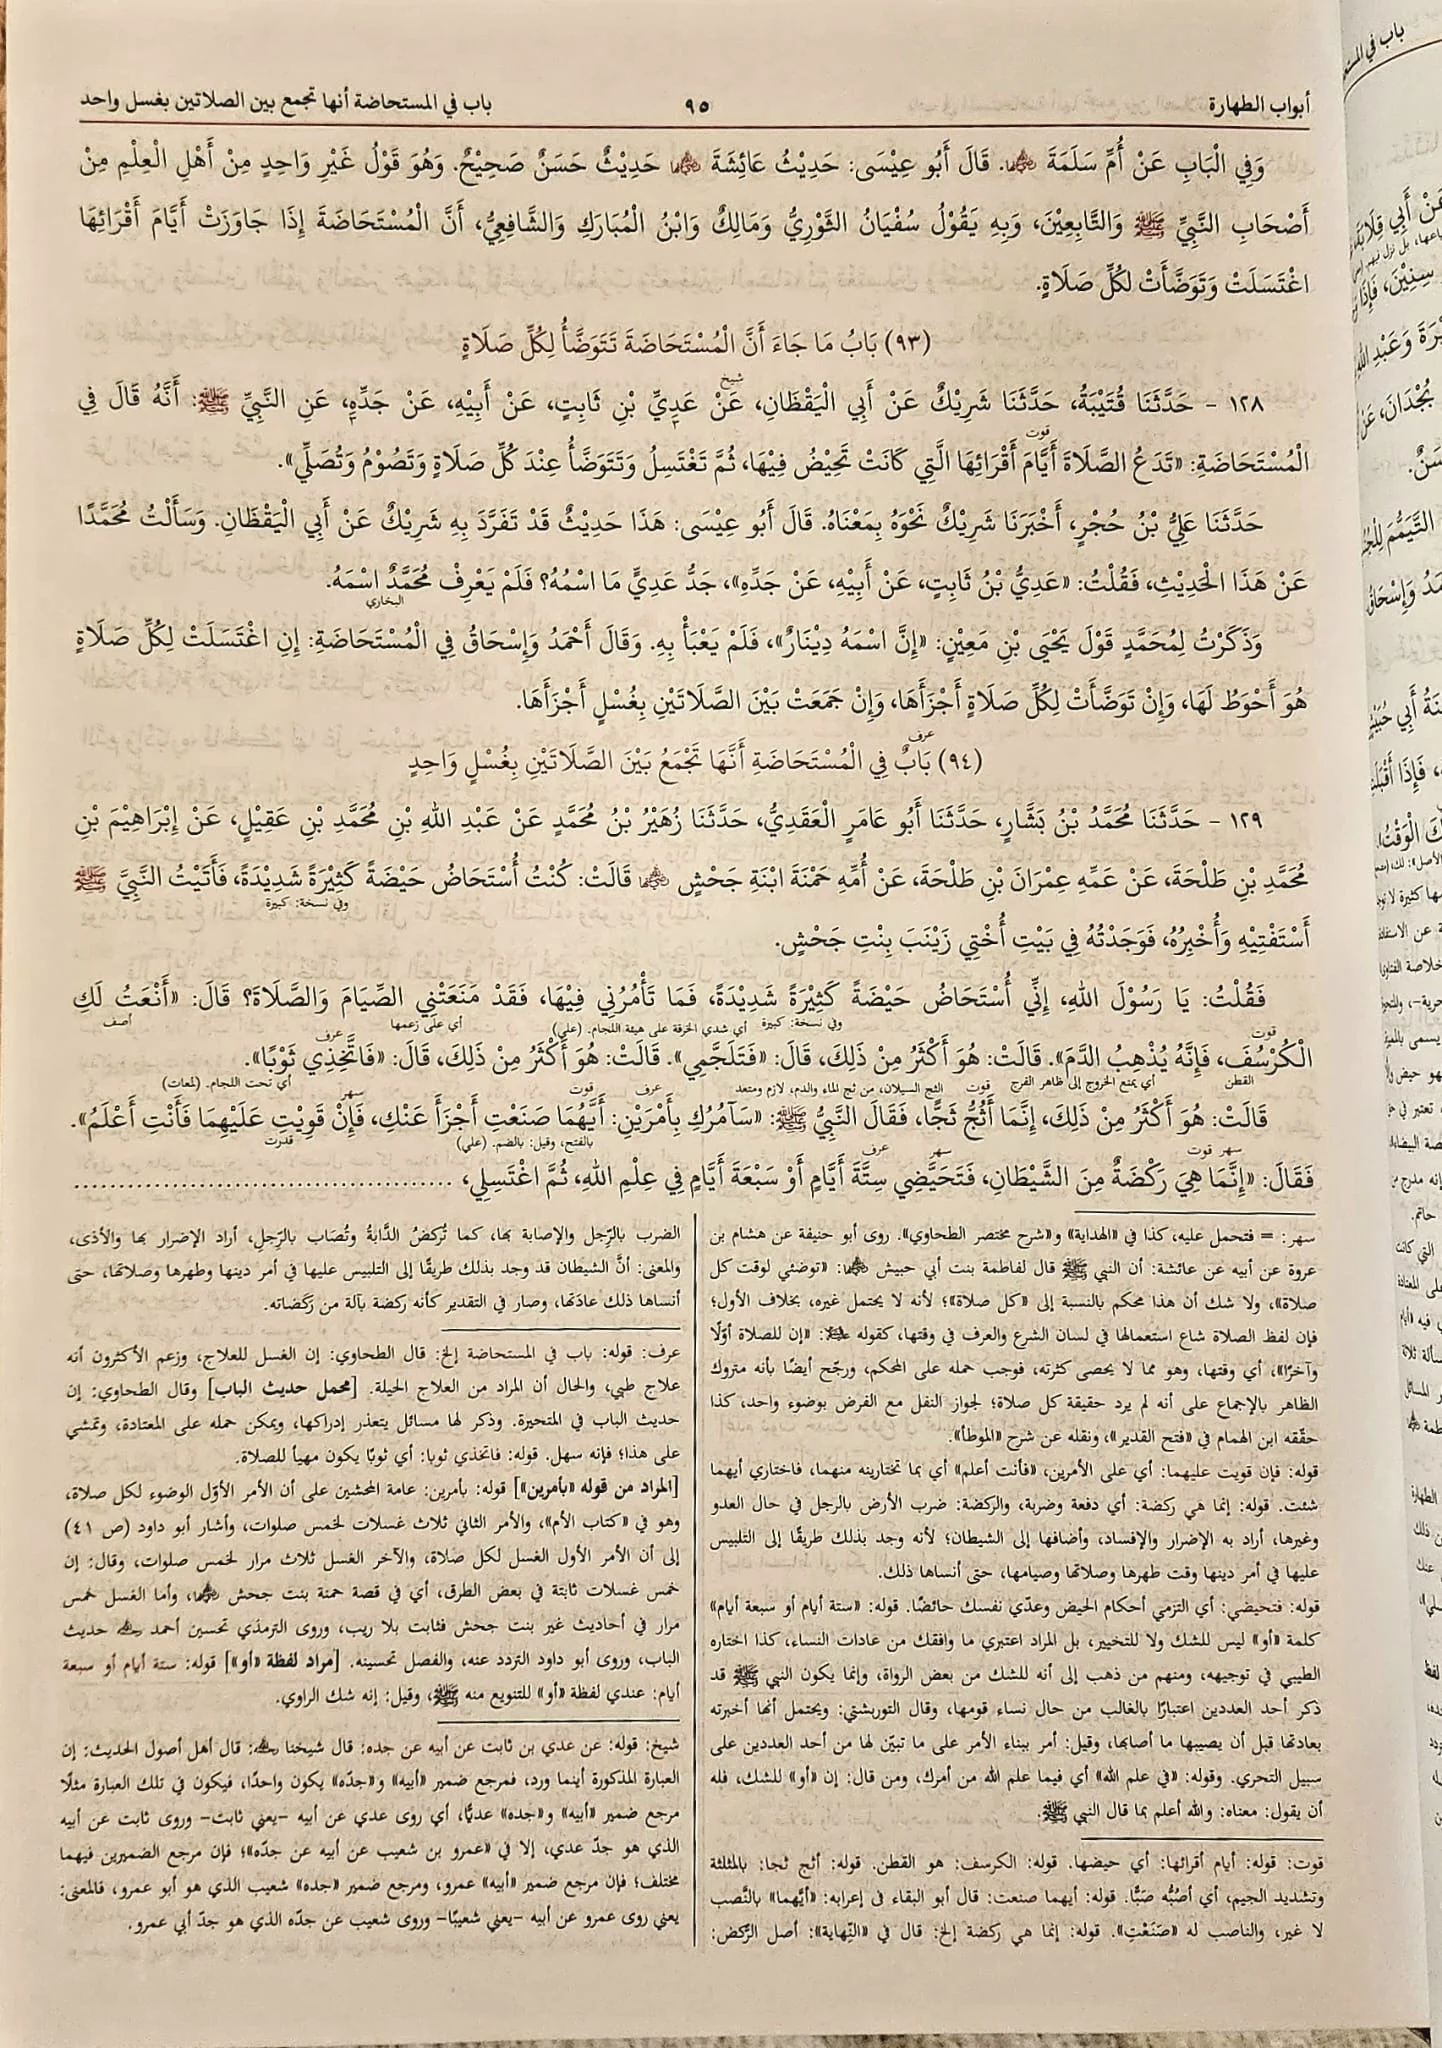 أبواب الطهارة ٩٥ باب في المستحاضة أنها تجمع بين الصلاتين بغسل واحد
وَفِي الْبَابِ عَنْ أُمِّ سَلَمَةَ ﵂. قَالَ أَبُو عِيْسَى: حَدِيْثُ عَائِشَةَ ﵂ حَدِيْثٌ حَسَنٌ صَحِيْحٌ. وَهُوَ قَوْلُ غَيْرِ وَاحِدٍ مِنْ أَهْلِ الْعِلْمِ مِنْ
أَصْحَابِ النَّبِيِّ ﷺ وَالتَّابِعِيْنَ، وَبِهِ يَقُوْلُ سُفْيَانُ الثَّوْرِيُّ وَمَالِكٌ وَابْنُ الْمُبَارَكِ وَالشَّافِعِيُّ، أَنَّ الْمُسْتَحَاضَةَ إِذَا جَاوَزَتْ أَيَّامَ أَقْرَائِهَا
اغْتَسَلَتْ وَتَوَضَّأَتْ لِكُلِّ صَلَاةٍ.
(٩٣) بَابُ مَا جَاءَ أَنَّ الْمُسْتَحَاضَةَ تَتَوَضَّأُ لِكُلِّ صَلَاةٍ
شيخ
١٢٨ - حَدَّثَنَا قُتَيْبَةُ، حَدَّثَنَا شَرِيْكٌ عَنْ أَبِي الْيَقْظَانِ، عَنْ عَدِيِّ بْنِ ثَابِتٍ، عَنْ أَبِيْهِ، عَنْ جَدِّهِ، عَنِ النَّبِيِّ ﷺ: أَنَّهُ قَالَ فِي
قوت
الْمُسْتَحَاضَةِ: «تَدَعُ الصَّلَاةَ أَيَّامَ أَقْرَائِهَا الَّتِي كَانَتْ تَحِيْضُ فِيْهَا، ثُمَّ تَغْتَسِلُ وَتَتَوَضَّأُ عِنْدَ كُلِّ صَلَاةٍ وَتَصُوْمُ وَتُصَلِّي».
حَدَّثَنَا عَلِيُّ بْنُ حُجْرٍ، أَخْبَرَنَا شَرِيْكٌ نَحْوَهُ بِمَعْنَاهُ. قَالَ أَبُو عِيْسَى: هَذَا حَدِيْثٌ قَدْ تَفَرَّدَ بِهِ شَرِيْكٌ عَنْ أَبِي الْيَقْظَانِ. وَسَأَلْتُ مُحَمَّدًا
عَنْ هَذَا الْحَدِيْثِ، فَقُلْتُ: «عَدِيُّ بْنُ ثَابِتٍ، عَنْ أَبِيْهِ، عَنْ جَدِّهِ»، جَدُّ عَدِيٍّ مَا اسْمُهُ؟ فَلَمْ يَعْرِفْ مُحَمَّدٌ اسْمَهُ.
البخاري
وَذَكَرْتُ لِمُحَمَّدٍ قَوْلَ يَحْيَى بْنِ مَعِيْنٍ: «إِنَّ اسْمَهُ دِيْنَارٌ»، فَلَمْ يَعْبَأْ بِهِ. وَقَالَ أَحْمَدُ وَإِسْحَاقُ فِي الْمُسْتَحَاضَةِ: إِنِ اغْتَسَلَتْ لِكُلِّ صَلَاةٍ
هُوَ أَحْوَطُ لَهَا، وَإِنْ تَوَضَّأَتْ لِكُلِّ صَلَاةٍ أَجْزَأَهَا، وَإِنْ جَمَعَتْ بَيْنَ الصَّلَاتَيْنِ بِغُسْلٍ أَجْزَأَهَا.
عرف
(٩٤) بَابٌ فِي الْمُسْتَحَاضَةِ أَنَّهَا تَجْمَعُ بَيْنَ الصَّلَاتَيْنِ بِغُسْلٍ وَاحِدٍ
١٢٩ - حَدَّثَنَا مُحَمَّدُ بْنُ بَشَّارٍ، حَدَّثَنَا أَبُو عَامَرٍ الْعَقَدِيُّ، حَدَّثَنَا زُهَيْرُ بْنُ مُحَمَّدٍ عَنْ عَبْدِ اللهِ بْنِ مُحَمَّدِ بْنِ عَقِيْلٍ، عَنْ إِبْرَاهِيْمَ بْنِ
مُحَمَّدِ بْنِ طَلْحَةَ، عَنْ عَمِّهِ عِمْرَانَ بْنِ طَلْحَةَ، عَنْ أُمِّهِ حَمْنَةَ ابْنَةِ جَحْشٍ ﵂ قَالَتْ: كُنْتُ أُسْتَحَاضُ حَيْضَةً كَثِيْرَةً شَدِيْدَةً، فَأَتَيْتُ النَّبِيَّ ﷺ
وفي نسخة: كبيرة
أَسْتَفْتِيْهِ وَأُخْبِرُهُ، فَوَجَدْتُهُ فِي بَيْتِ أُخْتِي زَيْنَبَ بِنْتِ جَحْشٍ.
فَقُلْتُ: يَا رَسُوْلَ اللهِ، إِنِّي أُسْتَحَاضُ حَيْضَةً كَثِيْرَةً شَدِيْدَةً، فَمَا تَأْمُرُنِي فِيْهَا، فَقَدْ مَنَعَتْنِي الصِّيَامَ وَالصَّلَاةَ؟ قَالَ: «أَنْعَتُ لَكِ
قوت وفي نسخة: كبيرة أي شدي الخرقة على هيئة اللجام. (علي) أي على زعمها عرف أصف
الْكُرْسُفَ، فَإِنَّهُ يُذْهِبُ الدَّمَ». قَالَتْ: هُوَ أَكْثَرُ مِنْ ذَلِكَ، قَالَ: «فَتَلَجَّمِي». قَالَتْ: هُوَ أَكْثَرُ مِنْ ذَلِكَ، قَالَ: «فَاتَّخِذِي ثَوْبًا».
القطن أي يمنع الخروج إلى ظاهر الفرج قوت الثج السيلان، من ثج الماء والدم، لازم ومتعد عرف قوت سهر أي تحت اللجام. (لمعات)
قَالَتْ: هُوَ أَكْثَرُ مِنْ ذَلِكَ، إِنَّمَا أَثُجُّ ثَجًّا، فَقَالَ النَّبِيُّ ﷺ: «سَآمُرُكِ بِأَمْرَيْنِ: أَيَّهُمَا صَنَعْتِ أَجْزَأَ عَنْكِ، فَإِنْ قَوِيْتِ عَلَيْهِمَا فَأَنْتِ أَعْلَمُ».
سهر قوت سهر عرف بالفتح، وقيل: بالضم. (علي) قدرت
فَقَالَ: «إِنَّمَا هِيَ رَكْضَةٌ مِنَ الشَّيْطَانِ، فَتَحَيَّضِي سِتَّةَ أَيَّامٍ أَوْ سَبْعَةَ أَيَّامٍ فِي عِلْمِ اللهِ، ثُمَّ اغْتَسِلِي، ........................................
سهر: = فتحمل عليه، كذا في «الهداية» و«شرح مختصر الطحاوي». روى أبو حنيفة عن هشام بن
عروة عن أبيه عن عائشة: أن النبي ﷺ قال لفاطمة بنت أبي حبيش ﵂: «توضئي لوقت كل
صلاة»، ولا شك أن هذا محكم بالنسبة إلى «كل صلاة»؛ لأنه لا يحتمل غيره، بخلاف الأول؛
فإن لفظ الصلاة شاع استعمالها في لسان الشرع والعرف في وقتها، كقوله ﵇: «إن للصلاة أوّلًا
وآخرًا»، أي وقتها، وهو مما لا يحصى كثرته، فوجب حمله على المحكم، ورجّح أيضًا بأنه متروك
الظاهر بالإجماع على أنه لم يرد حقيقة كل صلاة؛ لجواز النفل مع الفرض بوضوء واحد، كذا
حقّقه ابن الهمام في «فتح القدير»، ونقله عن شرح «الموطأ».
قوله: فإن قويت عليهما: أي على الأمرين، «فأنت أعلم» أي بما تختارينه منهما، فاختاري أيهما
شئت. قوله: إنما هي ركضة: أي دفعة وضربة، والركضة: ضرب الأرض بالرجل في حال العدو
وغيرها، أراد به الإضرار والإفساد، وأضافها إلى الشيطان؛ لأنه وجد بذلك طريقًا إلى التلبيس
عليها في أمر دينها وقت طهرها وصلاتها وصيامها، حتى أنساها ذلك.
قوله: فتحيضي: أي التزمي أحكام الحيض وعدّي نفسك حائضًا. قوله: «ستة أيام أو سبعة أيام»
كلمة «أو» ليس للشك ولا للتخيير، بل المراد اعتبري ما وافقك من عادات النساء، كذا اختاره
الطيبي في توجيهه، ومنهم من ذهب إلى أنه للشك من بعض الرواة، وإنما يكون النبي ﷺ قد
ذكر أحد العددين اعتبارًا بالغالب من حال نساء قومها، وقال التوربشتي: ويحتمل أنها أخبرته
بعادتها قبل أن يصيبها ما أصابها، وقيل: أمر ببناء الأمر على ما تبيّن لها من أحد العددين على
سبيل التحري. وقوله: «في علم الله» أي فيما علم الله من أمرك، ومن قال: إن «أو» للشك، فله
أن يقول: معناه: والله أعلم بما قال النبي ﷺ.
قوت: قوله: أيام أقرائها: أي حيضها. قوله: الكرسف: هو القطن. قوله: أثج ثجا: بالمثلثة
وتشديد الجيم، أي أصُبُّه صَبًّا. قوله: أيهما صنعت: قال أبو البقاء فى إعرابه: «أيَّهما» بالنَّصب
لا غير، والناصب له «صَنَعْتِ». قوله: إنما هي ركضة إلخ: قال في «النِّهاية»: أصل الرَّكض:
الضرب بالرِّجل والإصابة بها، كما تُركضُ الدَّابةُ وتُصَاب بالرِّجلِ، أراد الإضرار بها والأذى،
والمعنى: أنَّ الشيطان قد وجد بذلك طريقًا إلى التلبيس عليها في أمر دينها وطهرها وصلاتها، حتى
أنساها ذلك عادَتها، وصار في التقدير كأنه ركضة بآلة من رَكَضاته.
عرف: قوله: باب في المستحاضة إلخ: قال الطحاوي: إن الغسل للعلاج، وزعم الأكثرون أنه
علاج طبي، والحال أن المراد من العلاج الحيلة. [محمل حديث الباب] وقال الطحاوي: إن
حديث الباب في المتحيرة. وذكر لها مسائل يتعذر إدراكها، ويمكن حمله على المعتادة، وتمشي
على هذا؛ فإنه سهل. قوله: فاتخذي ثوبا: أي ثوبًا يكون مهيأ للصلاة.
[المراد من قوله «بأمرين»] قوله: بأمرين: عامة المحشين على أن الأمر الأوّل الوضوء لكل صلاة،
وهو في «كتاب الأم»، والأمر الثاني ثلاث غسلات لخمس صلوات، وأشار أبو داود (ص ٤١)
إلى أن الأمر الأول الغسل لكل صلاة، والآخر الغسل ثلاث مرار لخمس صلوات، وقال: إن
خمس غسلات ثابتة في بعض الطرق، أي في قصة حمنة بنت جحش ﵂، وأما الغسل خمس
مرار في أحاديث غير بنت جحش فثابت بلا ريب، وروى الترمذي تحسين أحمد ﵀ حديث
الباب، وروى أبو داود التردد عنه، والفصل تحسينه. [مراد لفظة «أو»] قوله: ستة أيام أو سبعة
أيام: عندي لفظة «أو» للتنويع منه ﷺ، وقيل: إنه شك الراوي.
شيخ: قوله: عن عدي بن ثابت عن أبيه عن جده: قال شيخنا ﵀: قال أهل أصول الحديث: إن
العبارة المذكورة أينما ورد، فمرجع ضمير «أبيه» و«جدّه» يكون واحدًا، فيكون في تلك العبارة مثلًا
مرجع ضمير «أبيه» و«جده» عديًّا، أي روى عدي عن أبيه -يعني ثابت- وروى ثابت عن أبيه
الذي هو جدّ عدي، إلا في «عمرو بن شعيب عن أبيه عن جدّه»؛ فإن مرجع الضميرين فيهما
مختلف؛ فإن مرجع ضمير «أبيه» عمرو، ومرجع ضمير «جده» شعيب الذي هو أبو عمرو، فالمعنى:
يعني روى عمرو عن أبيه -يعني شعيبًا- وروى شعيب عن جدّه الذي هو جدّ أبي عمرو.